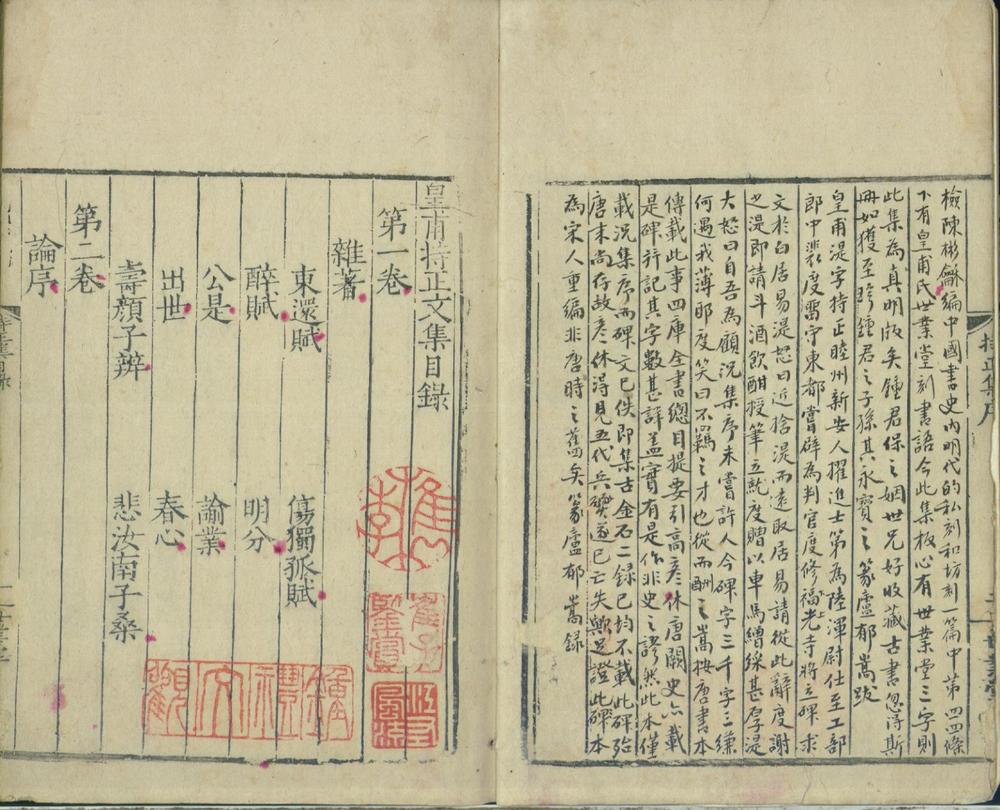 檢陳彬龢編中國書史內明代的私刻和坊刻一篇中第四四條
下有皇甫氏世業堂刻書語今此集板心有世業堂三字則
此集為真明版矣鍾君保之姻世兄好收藏古書忽得斯
冊如獲至珍鍾君之子孫其永寶之篆廬郁嵩跋
皇甫湜字持正睦州新安人擢進士第為陸渾尉仕至工部
郎中裴度留守東都嘗辟為判官度修福光寺將立碑求
文於白居易湜怒曰近捨湜而遠取居易請從此辭度謝
之湜即請斗酒飲酣援筆立就度贈以車馬繒綵甚厚湜
大怒曰自吾為顧況集序未嘗許人今碑字三千字三縑
何遇我薄耶度笑曰不羈之才也從而酬之嵩按唐書本
傳載此事四庫全書總目提要引高彥休唐闕史亦載
是碑并記其字數甚詳蓋實有是作非史之謬然此本僅
載況集序而碑文已佚即集古金石二錄已均不載此碑殆
唐末尚存故彥休得見五代兵燹遂已亡失歟是證此碑本
為宋人重編非唐時之舊矣篆廬郁 嵩錄
持正集序
皇甫持正文集目錄
第一卷
雜著
東還賦 傷獨孤賦
醉賦 明分
公是 諭業
出世 春心
壽顏子辨 悲汝南子桑
第二卷
論序